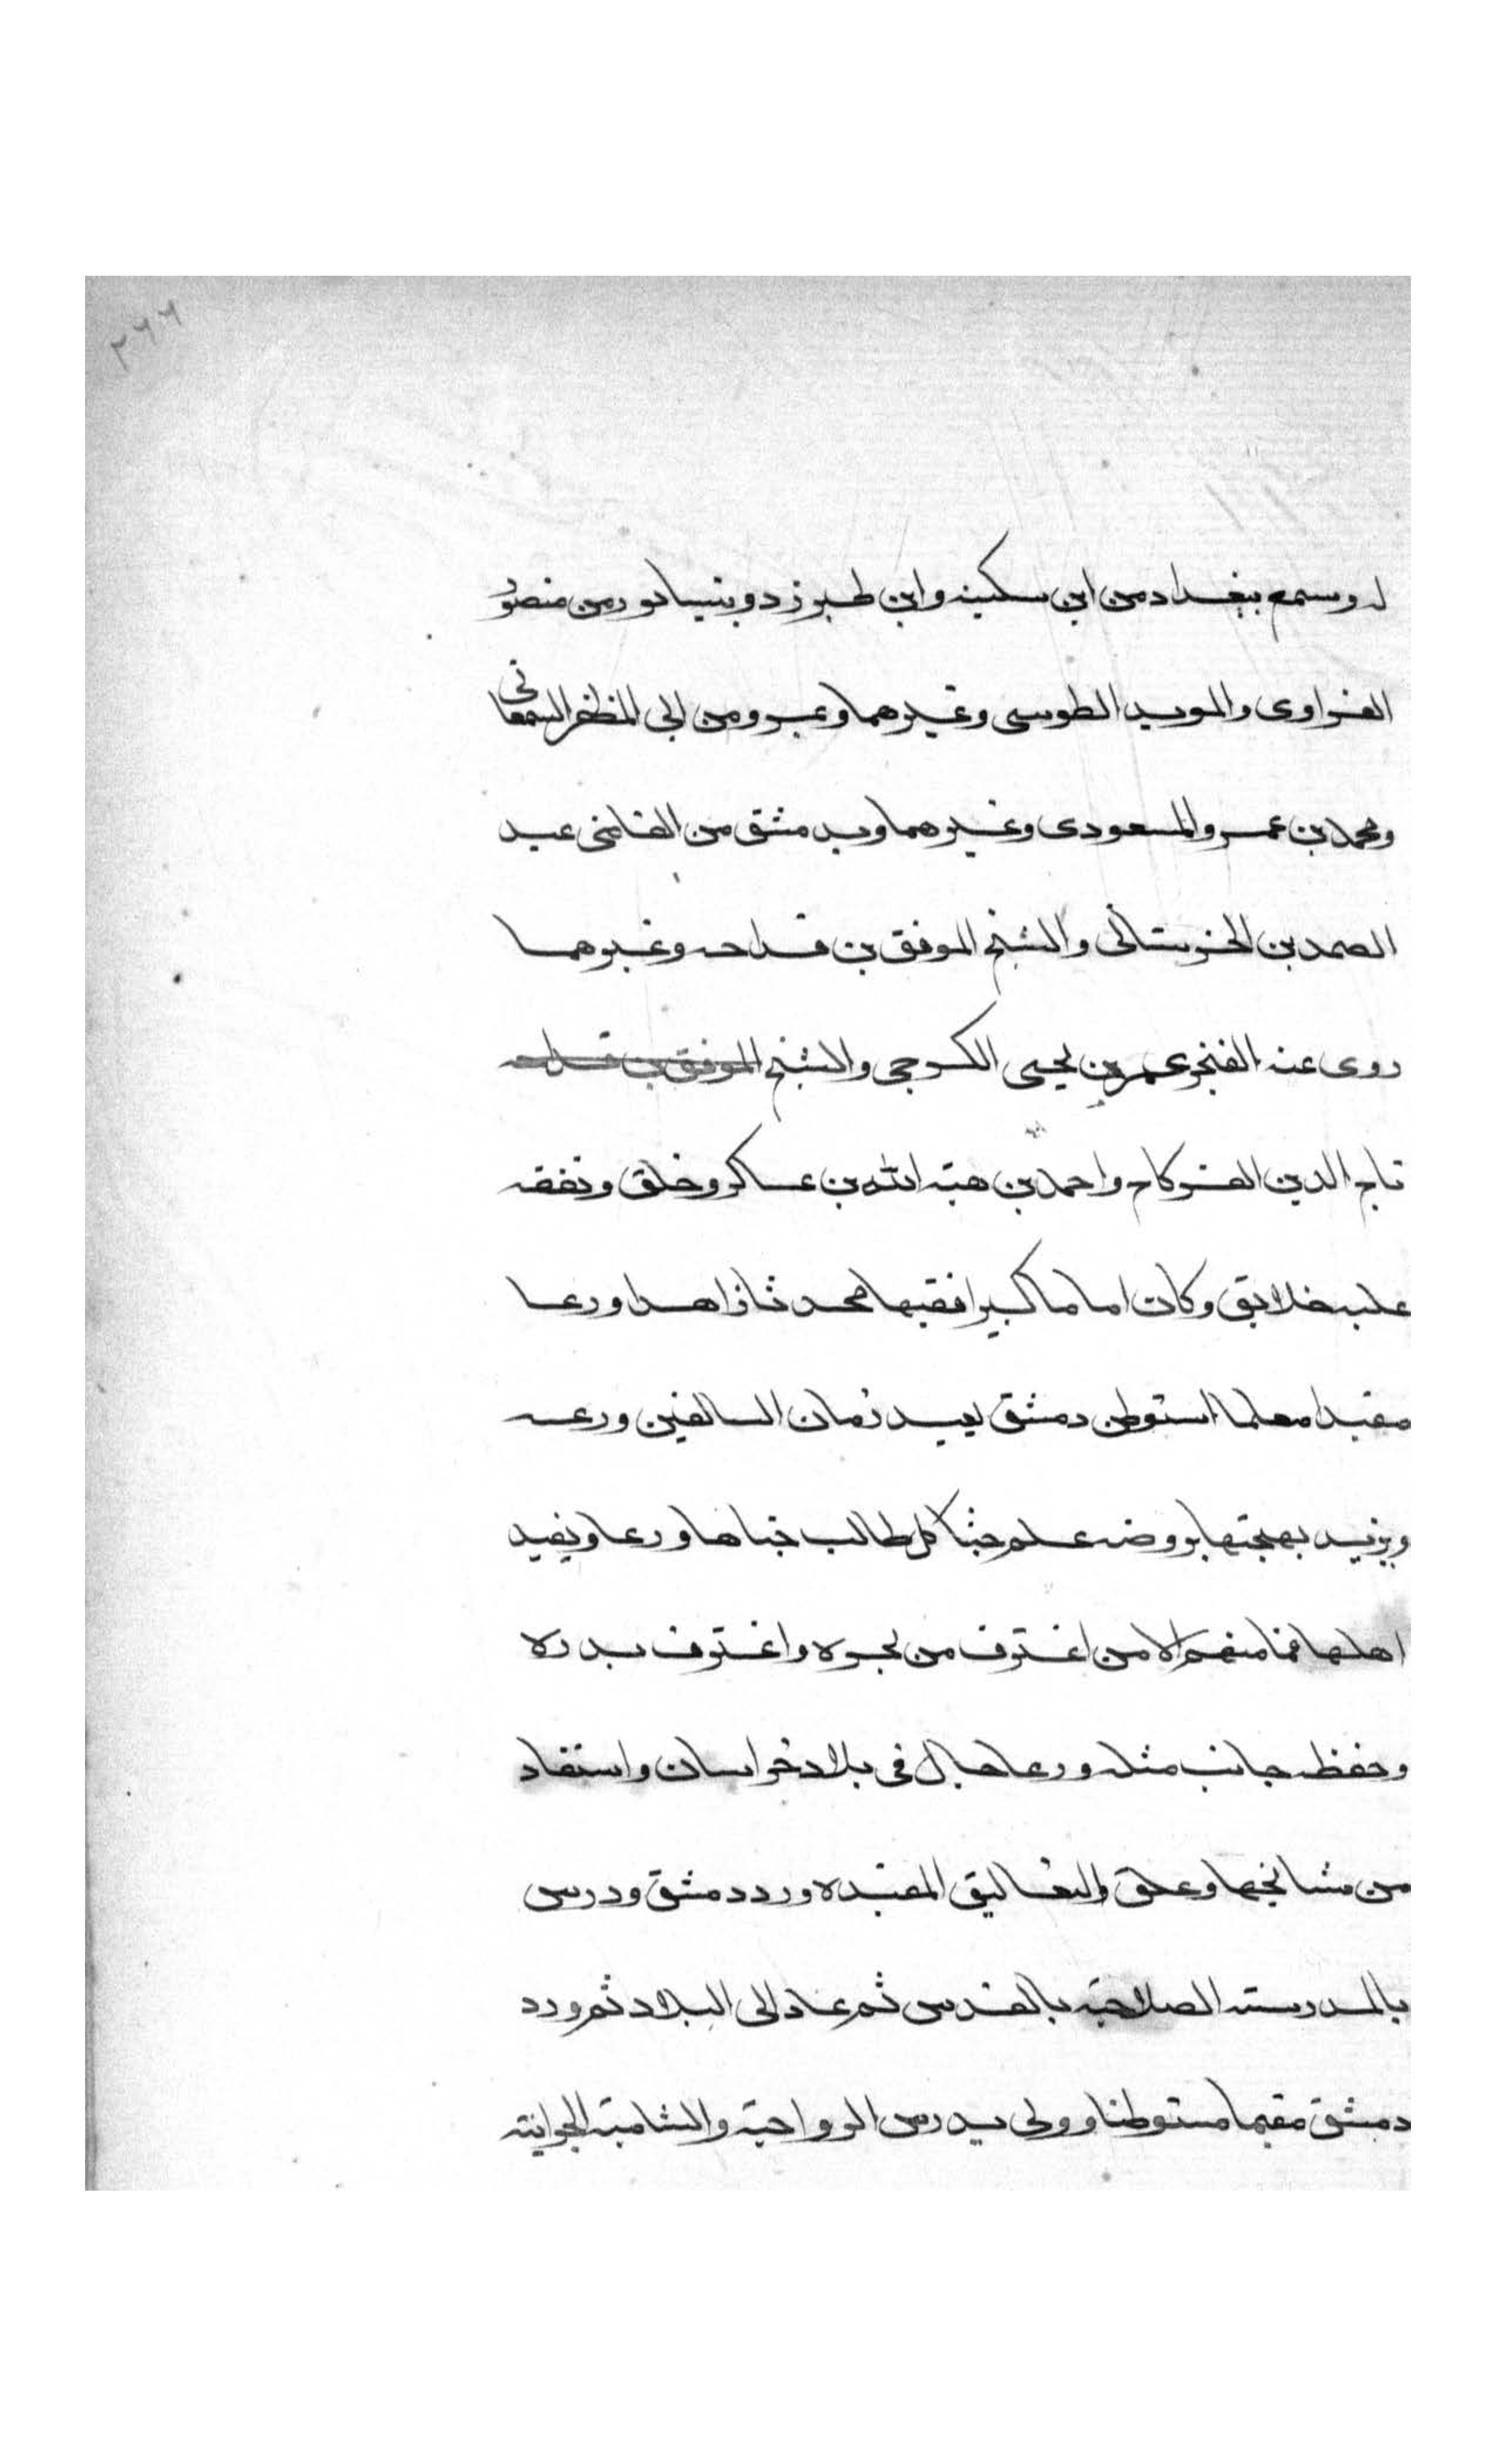 ٢٦٦
له وسمع ببغداد من ابن سكينه وابن طبرزد وبنيسابور من منصور
الفراوى والمويد الطوسى وغيرهما وبمرو من ابى المظفر السمعانى
ومحمد بن عمر والمسعودى وغيرهما وبدمشق من القاضى عبد
الصمد بن الحرستانى والشيخ الموفق بن قدامه وغيرهما
روى عنه الفخر عمر بن يحيى الكرجى والشيخ الموفق بن قدامه
تاج الدين الفركاح واحمد بن هبة الله بن عساكر وخلق وتفقه
عليه خلايق وكان اماما كبيرا فقيها محدثا زاهدا ورعا
مفيدا معلما استوطن دمشق يعيد زمان السالفين ورعه
ويزيد بهجتها بروضه علم جثا كل طالب جناها ورعا ويفيد
اهلها فما منهم الا من اغترف من بحره واعترف بدره
وحفظ جانب مثله ورعا جال فى بلاد خراسان واستفاد
من مشايخها وعلق التعاليق المفيده وورد دمشق ودرس
بالمدرسة الصلاحية بالقدس ثم عاد الى البلاد ثم ورد
دمشق مقيما مستوطنا وولى تدريس الرواحية والشامية الجوانية